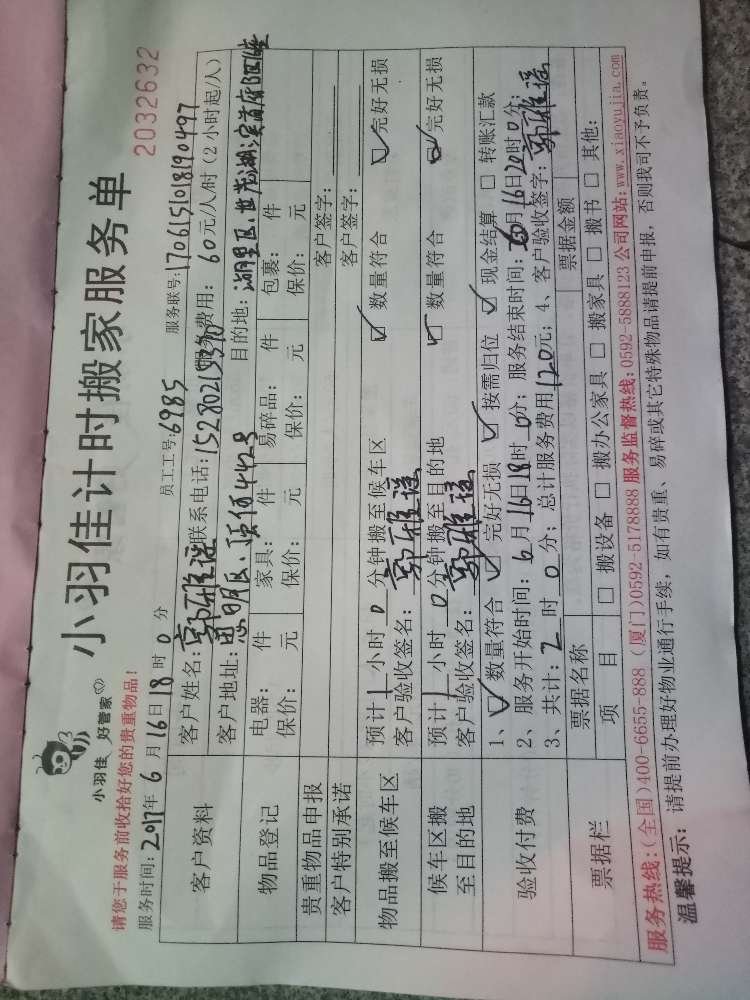 小羽佳计时搬家服务单
小羽佳 好管家
2032632
请您于服务前收拾好您的贵重物品！
服务时间：2017年6月16日18时0分 员工工号：6985 服务联号：1706151018190497
客户资料
客户姓名：郭雅瑶 联系电话：15280215370 服务费用：60元/人/时（2小时起/人）
客户地址：思明区、 4423 目的地：湖里区、
物品登记
电器： 件 家具： 件 易碎品： 件 包裹： 件
保价： 元 保价： 元 保价： 元 保价： 元
贵重物品申报 客户签字：
客户特别承诺 客户签字：
物品搬至候车区
预计1小时0分钟搬至候车区
客户验收签名：郭雅瑶 数量符合 完好无损
候车区搬至目的地
预计1小时0分钟搬至目的地
客户验收签名：郭雅瑶 数量符合 完好无损
验收付费
1、数量符合 完好无损 按需归位 现金结算 转账汇款
2、服务开始时间：6月16日18时0分；服务结束时间：6月16日20时0分；
3、共计：2时0分；总计服务费用120元；4、客户验收签字：郭雅瑶
票据栏
票据名称 票据金额
项目 □搬设备 □搬办公家具 □搬家具 □搬书 □其他：
服务热线：（全国）400-6655-888（厦门）0592-5178888 服务监督热线：0592-5888123 公司网站：www.xiaoyujia.com
温馨提示： 请提前办理好物业通行手续，如有贵重、易碎或其它特殊物品请提前申报，否则我司不予负责。